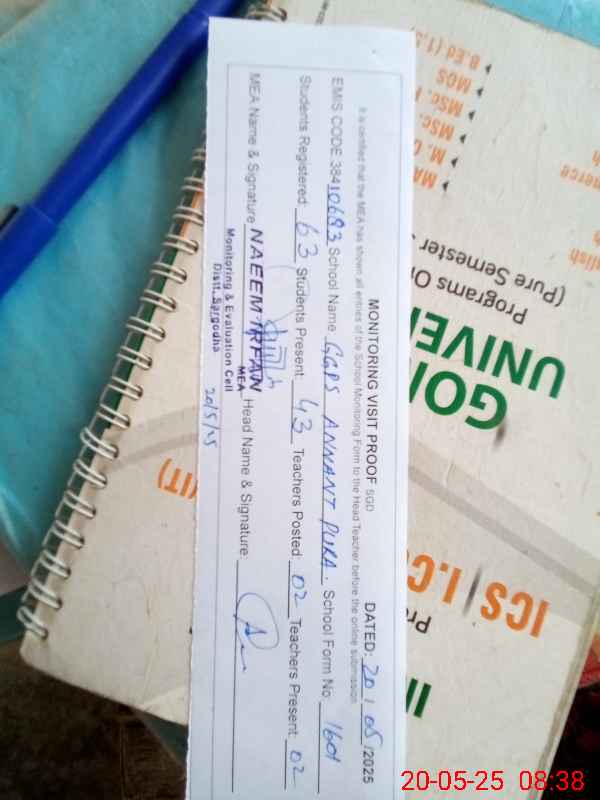 MONITORING VISIT PROOF SGD DATED: 20 / 05 /2025
It is certified that the MEA has shown all entries of the School Monitoring Form to the Head Teacher before the online submission
EMIS CODE 38410683 School Name GGPS ANNANT PURA. School Form No. 1601
Students Registered: 63 Students Present: 43 Teachers Posted: 02 Teachers Present: 02
MEA Name & Signature NAEEM IRFAN Head Name & Signature:
MEA
Monitoring & Evaluation Cell
Distt. Sargodha
20/5/25
B.Ed (1.5
MOS
MSc.
MSc.
M.
MA
Programs O
(Pure Semester
GO
UNIVE
ICS I.C
IT)
20-05-25 08:38